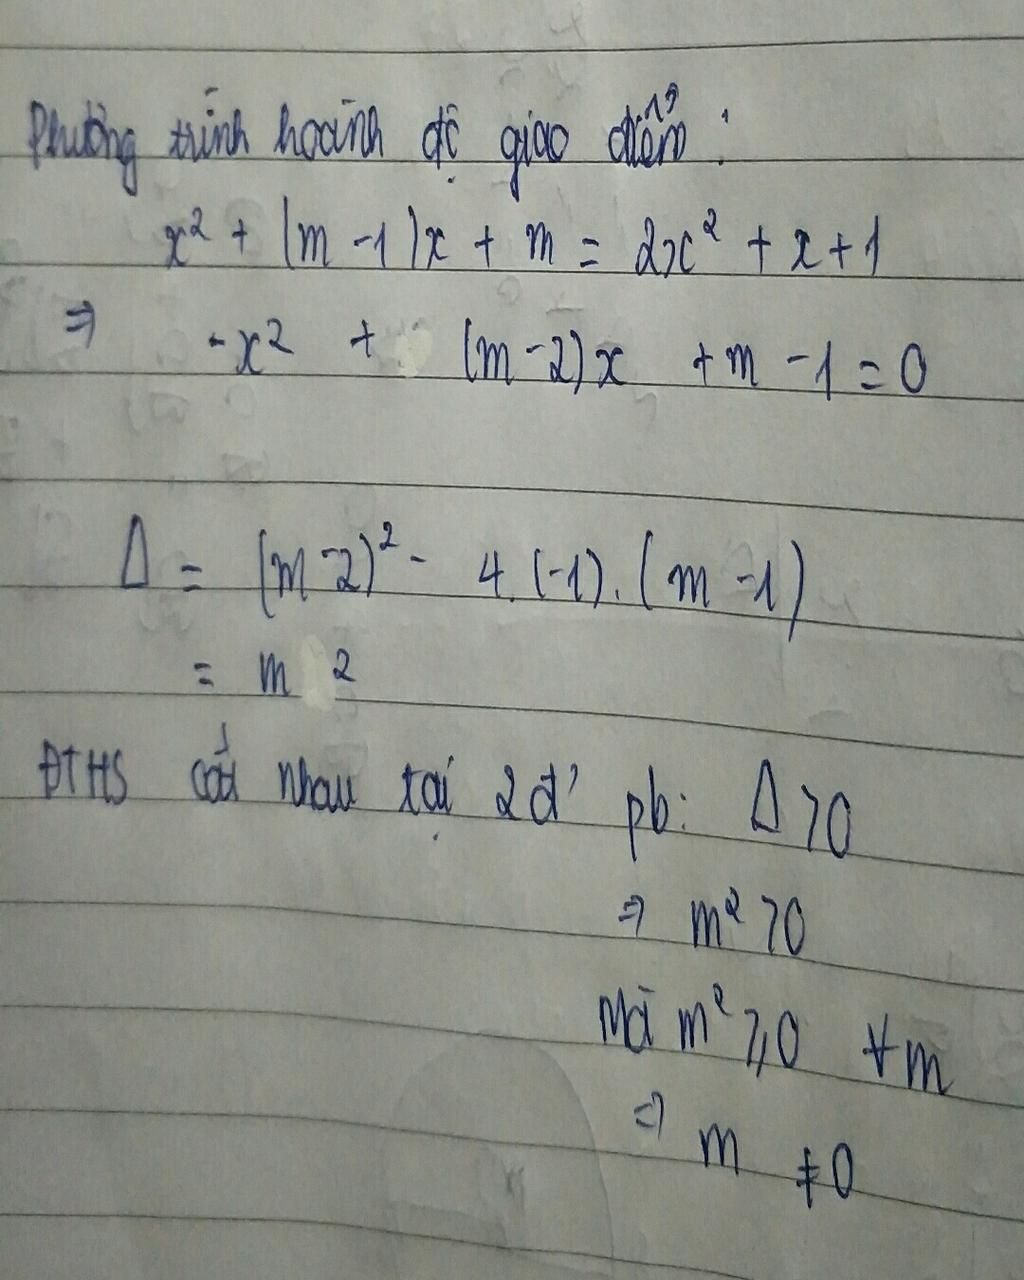 Phương trình hoành độ giao điểm :
x² + (m -1)x + m = 2x² + x + 1
⇒ -x² + (m-2)x + m - 1 = 0
Δ = (m-2)² - 4.(-1).(m -1)
= m 2
ĐTHS cắt nhau tại 2đ' pb: Δ > 0
⇒ m² > 0
Mà m² ⩾ 0 ∀m
⇒ m ≠ 0